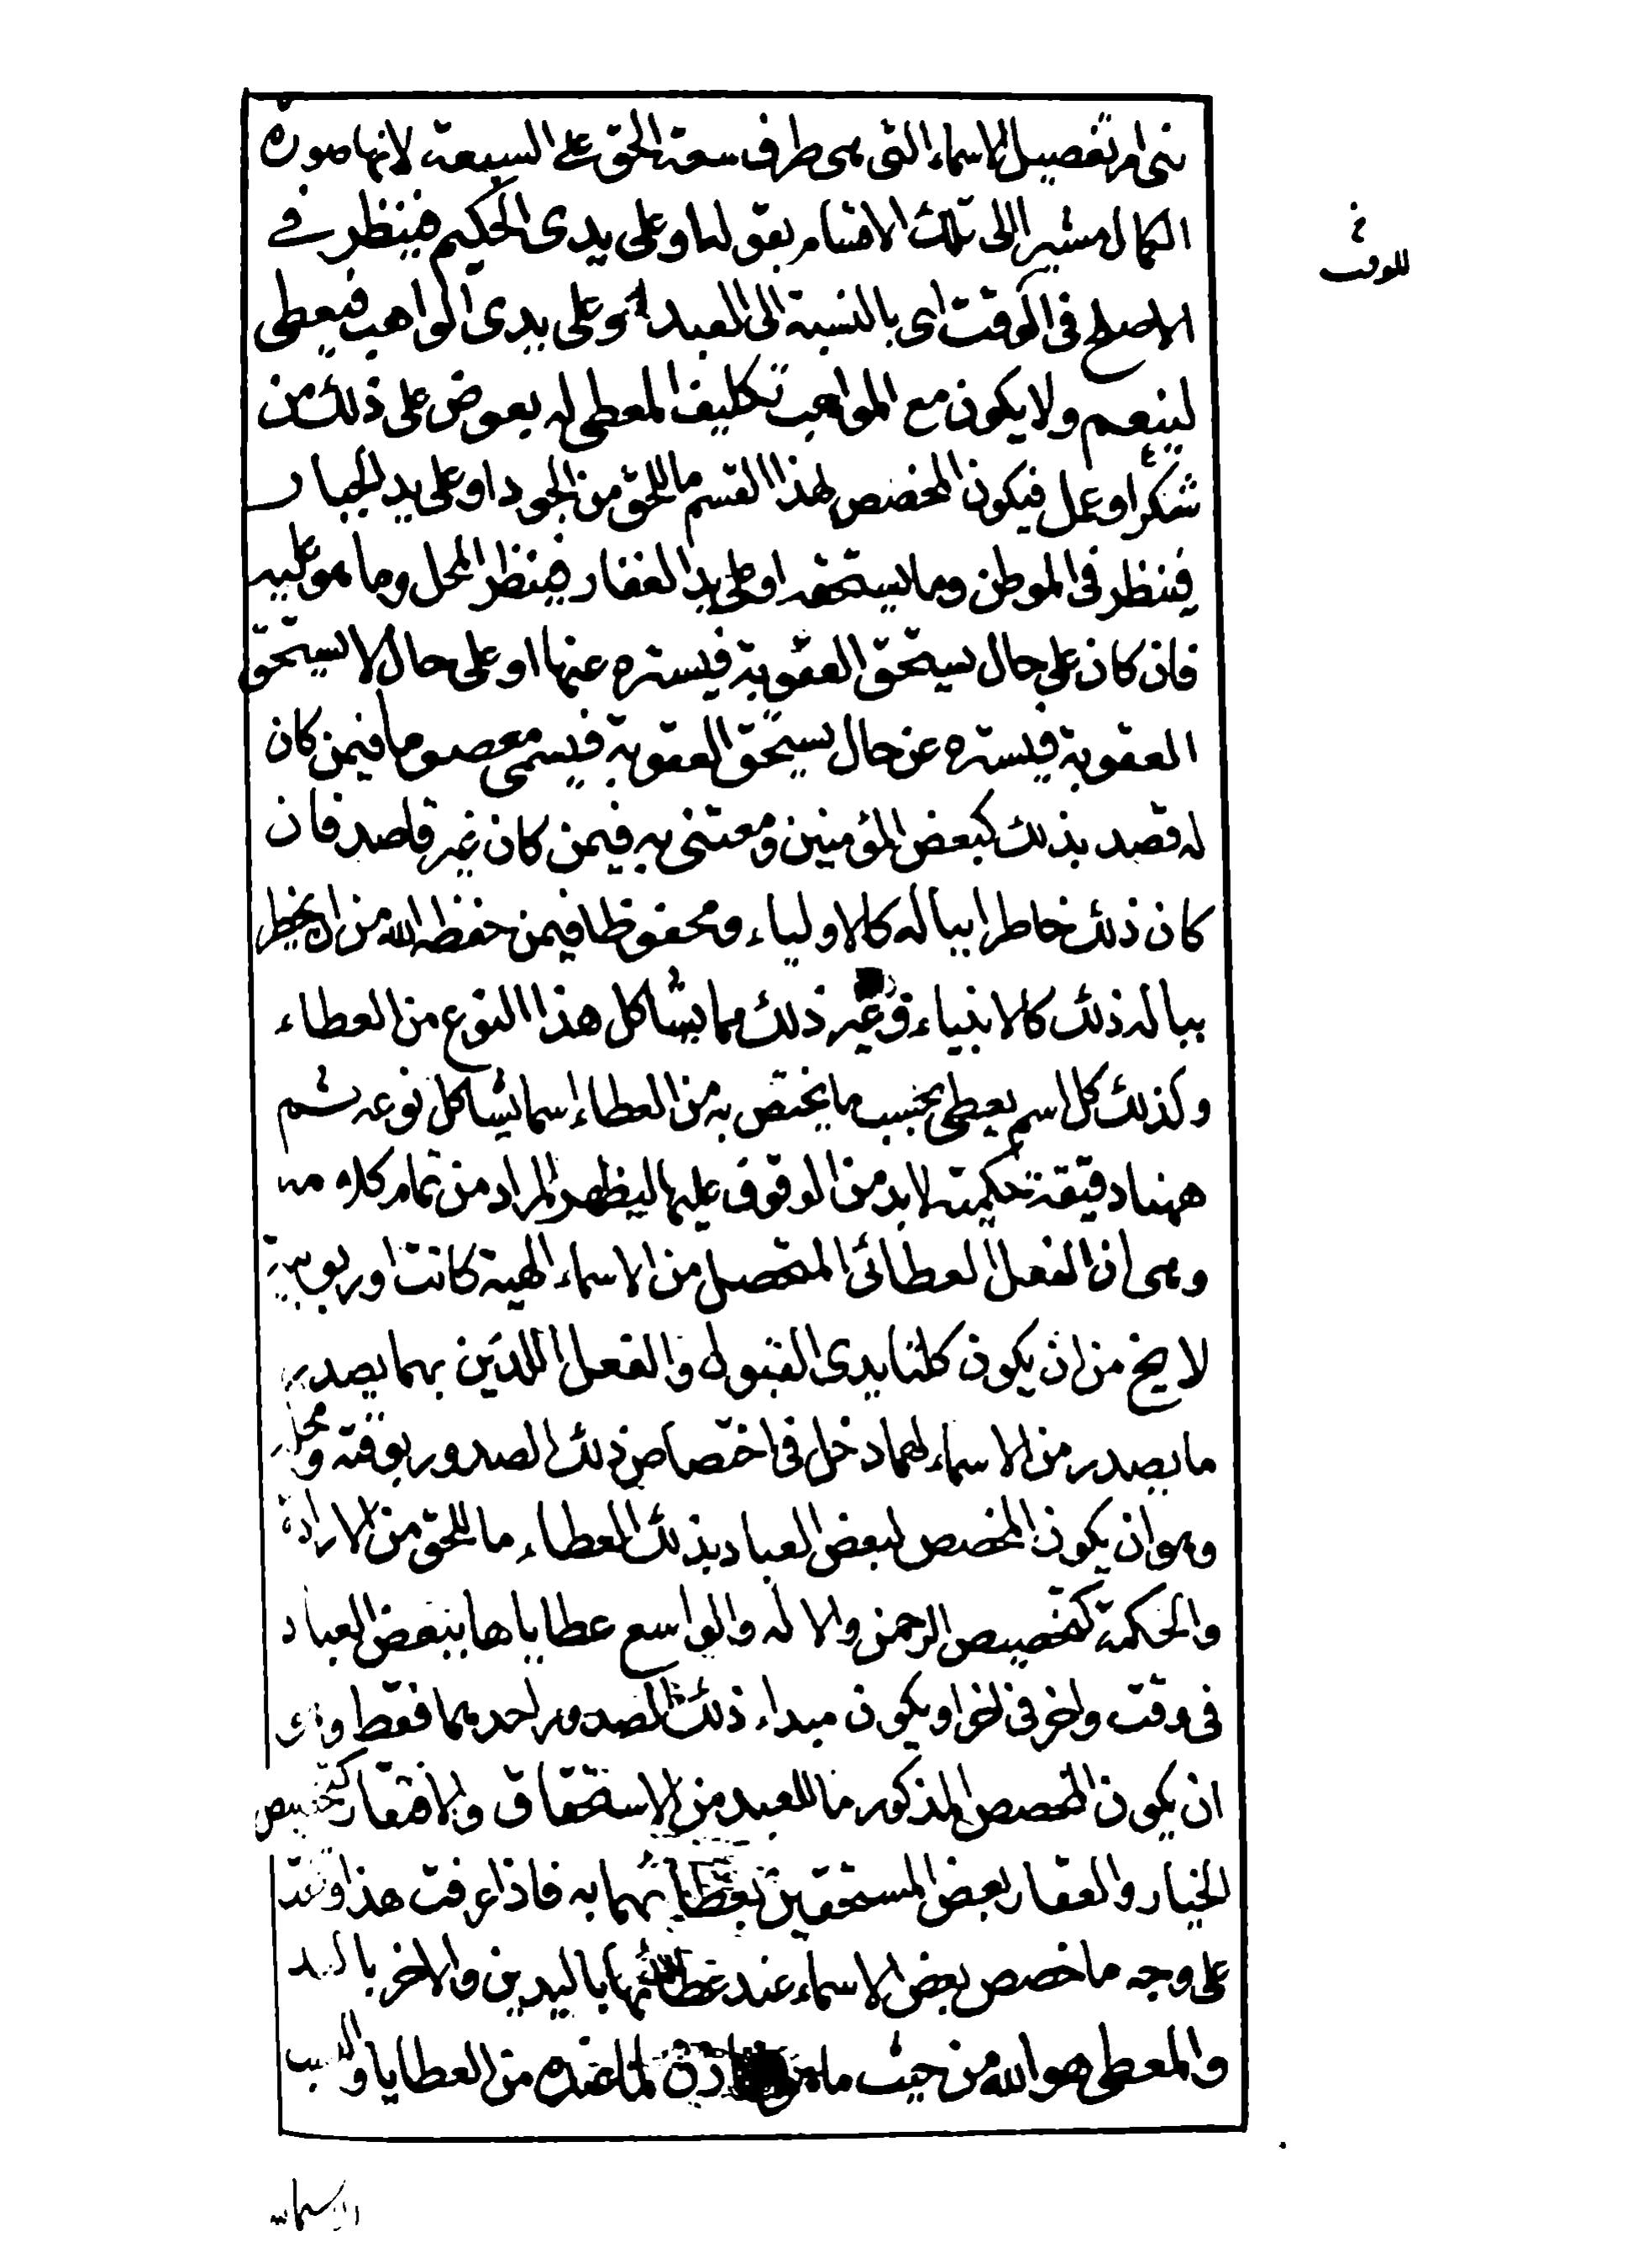 تنى امر تفصيل الاسماء التى هى طرف سعة الحق على السبعة لانها صورة
الكمال مشيرا الى تلك الاقسام بقوله او على يدى الحكيم فينظر في
الاصلح فى الوقت اى بالنسبة الى العبد او على يدى الواهب فيعطى
لينعم ولا يكون مع الواهب تكليف المعطى له بعوض على ذلك من
شكر او عمل فيكون المخصص لهذا القسم ما للحق من الجود او على يد الجبار
فينظر فى الموطن وما يستحقه او على يد الغفار فينظر المحل وما هو عليه
فان كان على حال يستحق العقوبة فيستره عنها او على حال لا يستحق
العقوبة فيستره عن حال يستحق العقوبة فيسمى معصوما فيمن كان
له قصد بذلك كبعض المؤمنين ومعتنى به فيمن كان غير قاصد فان
كان ذلك خاطرا بباله كالاولياء ومحفوظا فيمن حفظه الله من ان يخطر
بباله ذلك كالانبياء وغير ذلك مما يشاكل هذا النوع من العطاء
وكذلك كل اسم يعطى بحسب ما يختص به من العطاء اسما يشاكل نوعه ثم
ههنا دقيقة حكمية لا بد من الوقوف عليها ليظهر المراد من تمام كلامه
وهى ان الفعل العطائى المتحصل من الاسماء الهية كانت او ربوبية
لا يخ من ان يكون كلتا يدى القبول والفعل اللذين بهما يصدر
ما يصدر من الاسماء لهما دخل فى اختصاص ذلك الصدور بوقته ومحله
وهو ان يكون المخصص لبعض العباد بذلك العطاء ما للحق من الارادة
والحكمة كتخصيص الرحمن والاله والواسع عطاياها ببعض العباد
فى وقت واخر فى اخر او يكون مبداء ذلك الصدور احدهما فقط
ان يكون المخصص المذكور ما للعبد من الاستحقاق والافتقار كتخصيص
الجبار والغفار بعض المستحقين بعطائهما به فاذا عرفت هذا وقفت
على وجه ما خصص بعض الاسماء عند عطائها باليدين والاخر باليد
والمعطى هو الله من حيث ما هو خازن لما عنده من العطايا
للوقت